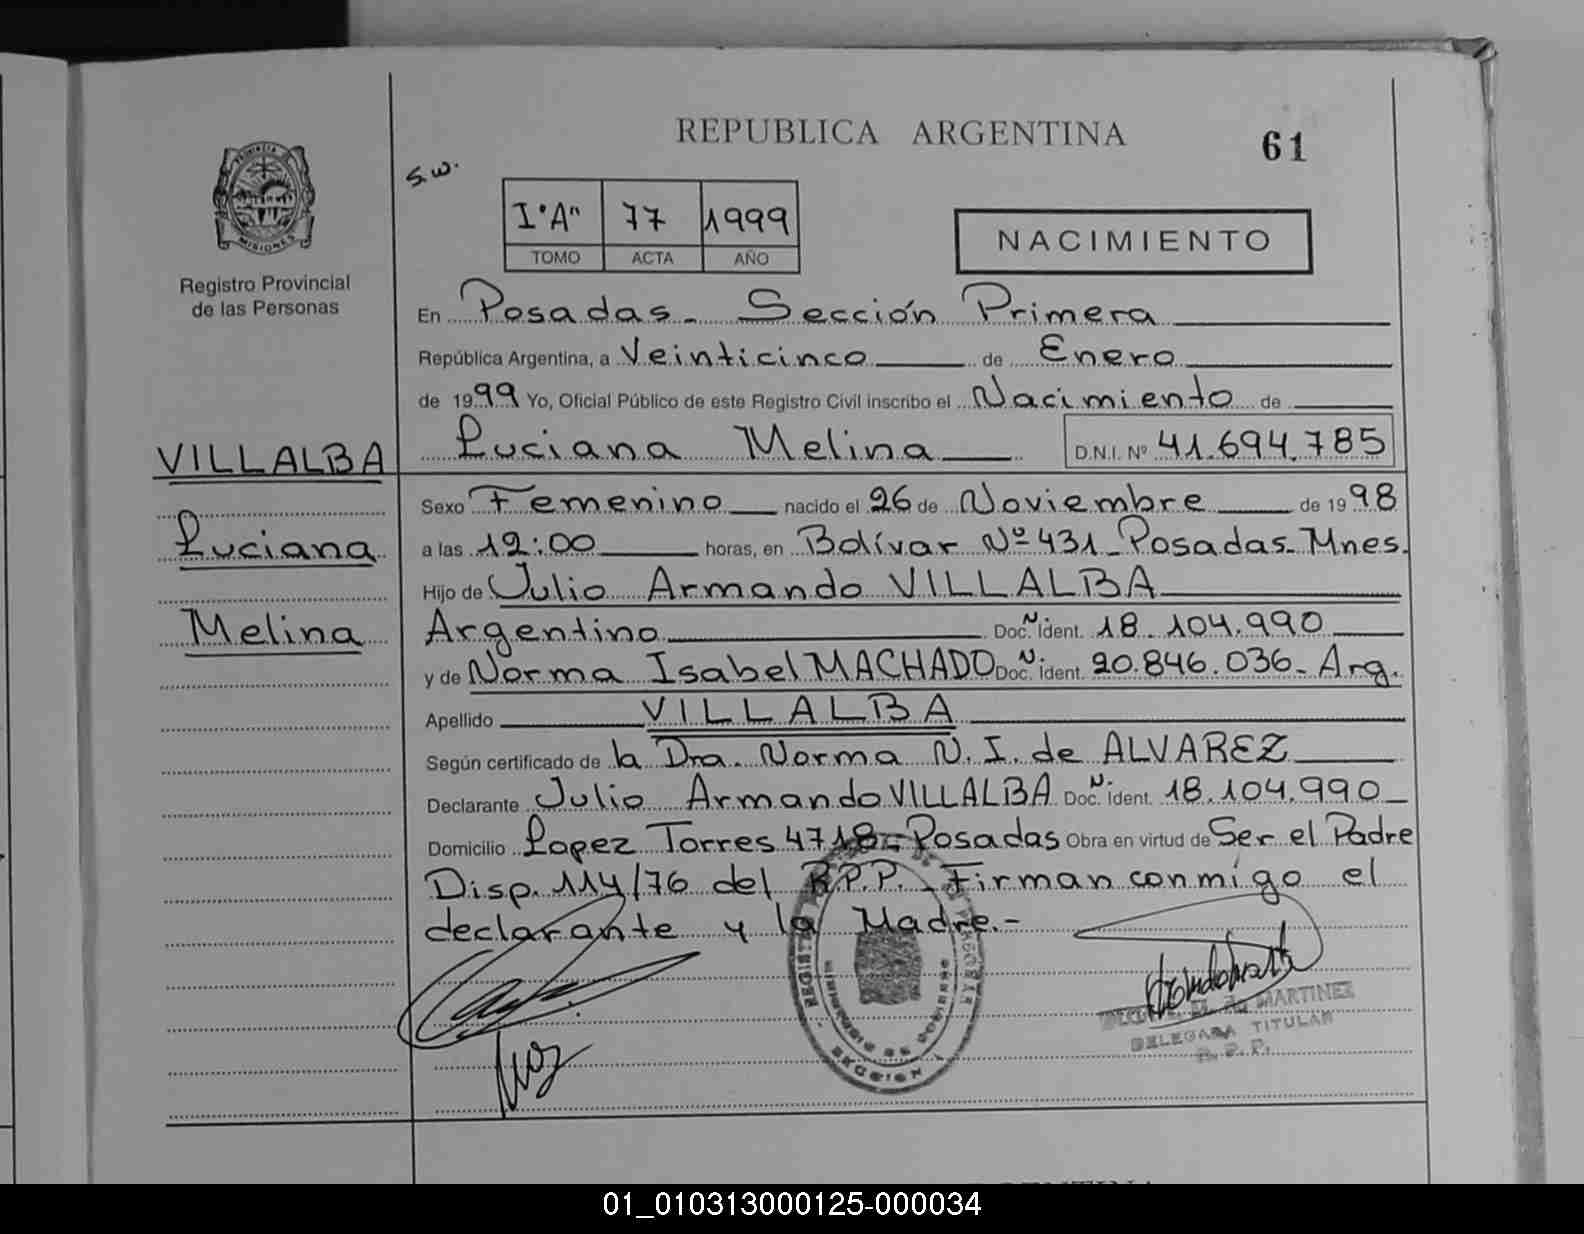 REPUBLICA ARGENTINA
61
S.W.
PROVINCIA DE
MISIONES
Registro Provincial
de las Personas
I°A" 77 1999
TOMO ACTA AÑO
NACIMIENTO
En Posadas - Sección Primera
República Argentina, a Veinticinco de Enero
de 1999 Yo, Oficial Público de este Registro Civil inscribo el Nacimiento de
Luciana Melina D.N.I. Nº 41.694.785
VILLALBA
Luciana
Melina
Sexo Femenino nacido el 26 de Noviembre de 1998
a las 12:00 horas, en Bolívar Nº 431 - Posadas - Mnes.
Hijo de Julio Armando VILLALBA
Argentino Doc. N. Ident. 18.104.990
y de Norma Isabel MACHADO Doc. N. Ident. 20.846.036 - Arg.
Apellido VILLALBA
Según certificado de la Dra. Norma N. I. de ALVAREZ
Declarante Julio Armando VILLALBA Doc. N. Ident. 18.104.990
Domicilio Lopez Torres 4718 - Posadas Obra en virtud de Ser el Padre
Disp. 114/76 del R.P.P. - Firman conmigo el
declarante y la Madre.-
MINISTERIO DE GOBIERNO
SECCION
MARTINEZ
DELEGADA TITULAR
R.P.P.
01_010313000125-000034